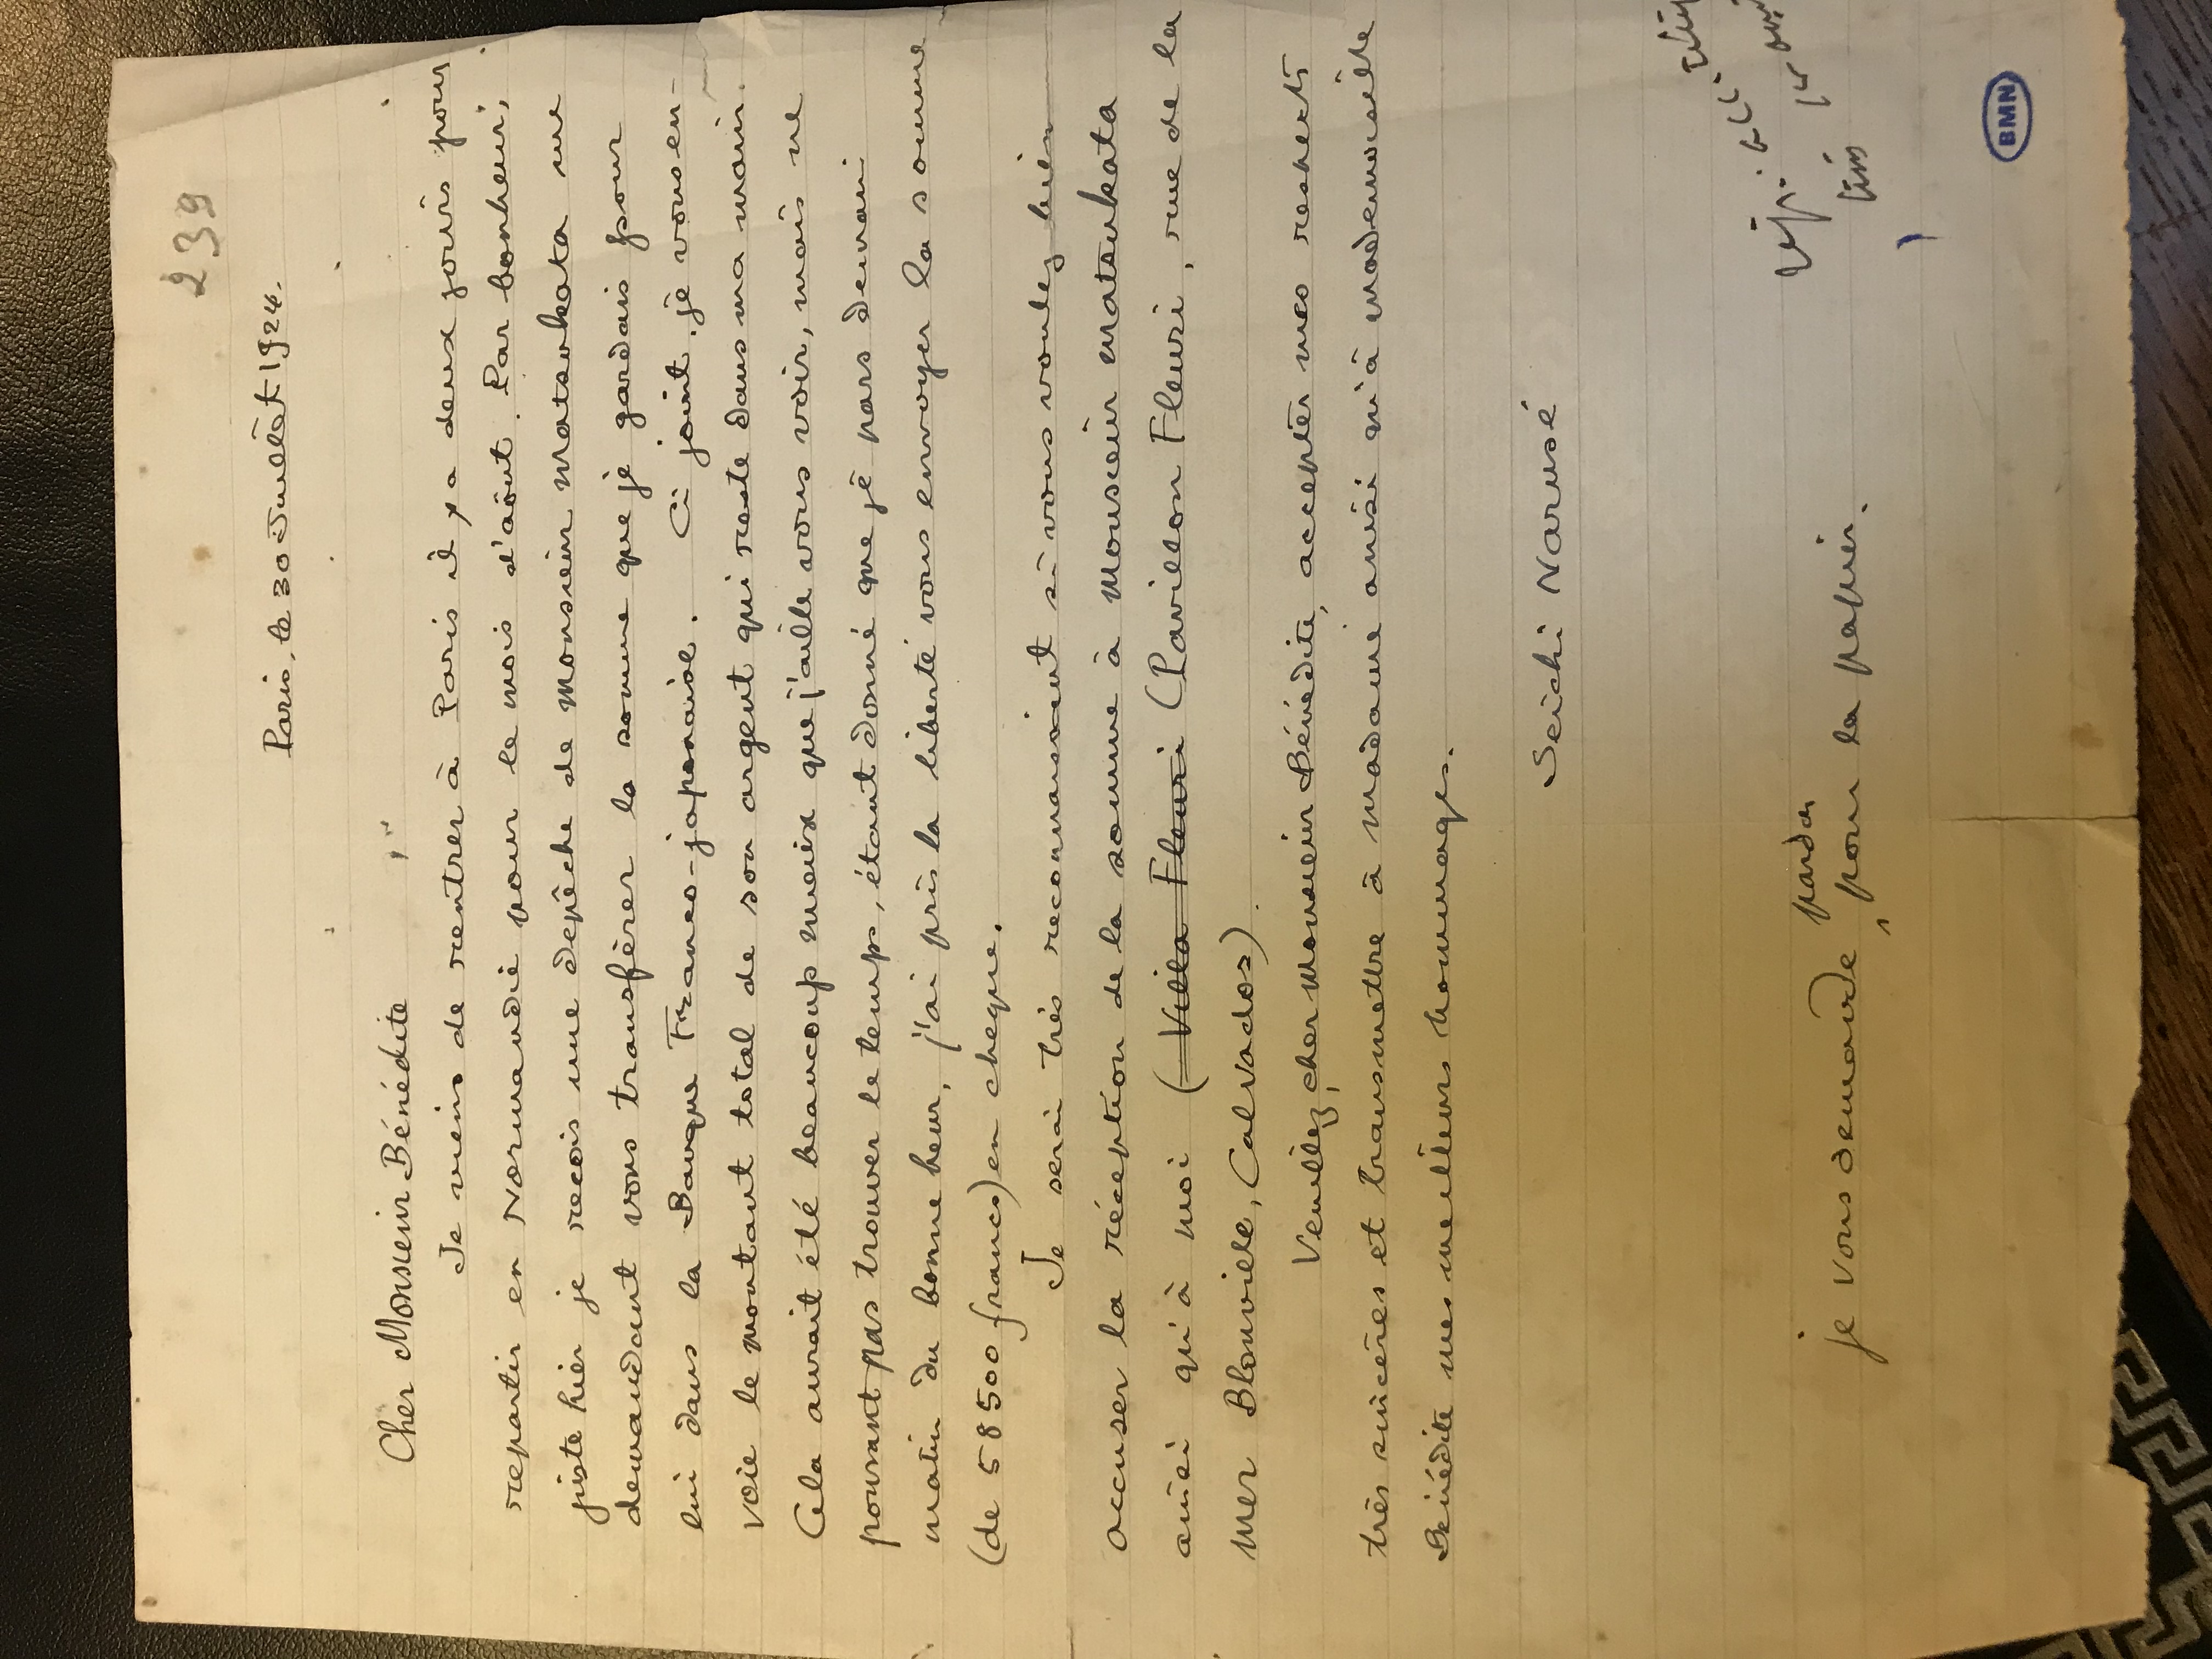 239
Paris, le 30 Juillet 1924.
Cher Monsieur Bénédite
Je viens de rentrer à Paris il y a deux jours pour
repartir en Normandie pour le mois d'août. Par bonheur,
juste hier je reçois une depêche de Monsieur Matsukata me
demandant vous transférer la somme que je gardais pour
lui dans la Banque Franco-japonaise. Ci joint, je vous en-
voie le montant total de son argent qui reste dans ma main.
Cela aurait été beaucoup mieux que j'aille vous voir, mais ne
pouvant pas trouver le temps, étant donné que je pars demain
matin du bonne heur, j'ai pris la liberté vous envoyer la somme
(de 58500 francs) en cheque.
Je serai très reconnaissant si vous voulez bien
accuser la réception de la somme à Monsieur Matsukata
ainsi qu'à moi (Villa Fleuri (Pavillon Fleuri, rue de la
mer Blonville, Calvados)
Veuillez, cher Monsieur Bénédite, accepter mes respects
très sincères et transmettre à madame ainsi qu'à mademoiselle
Bénédite mes meilleurs hommages.
Seichi Narusé
pardon
je vous demande pour la papier.
BMN